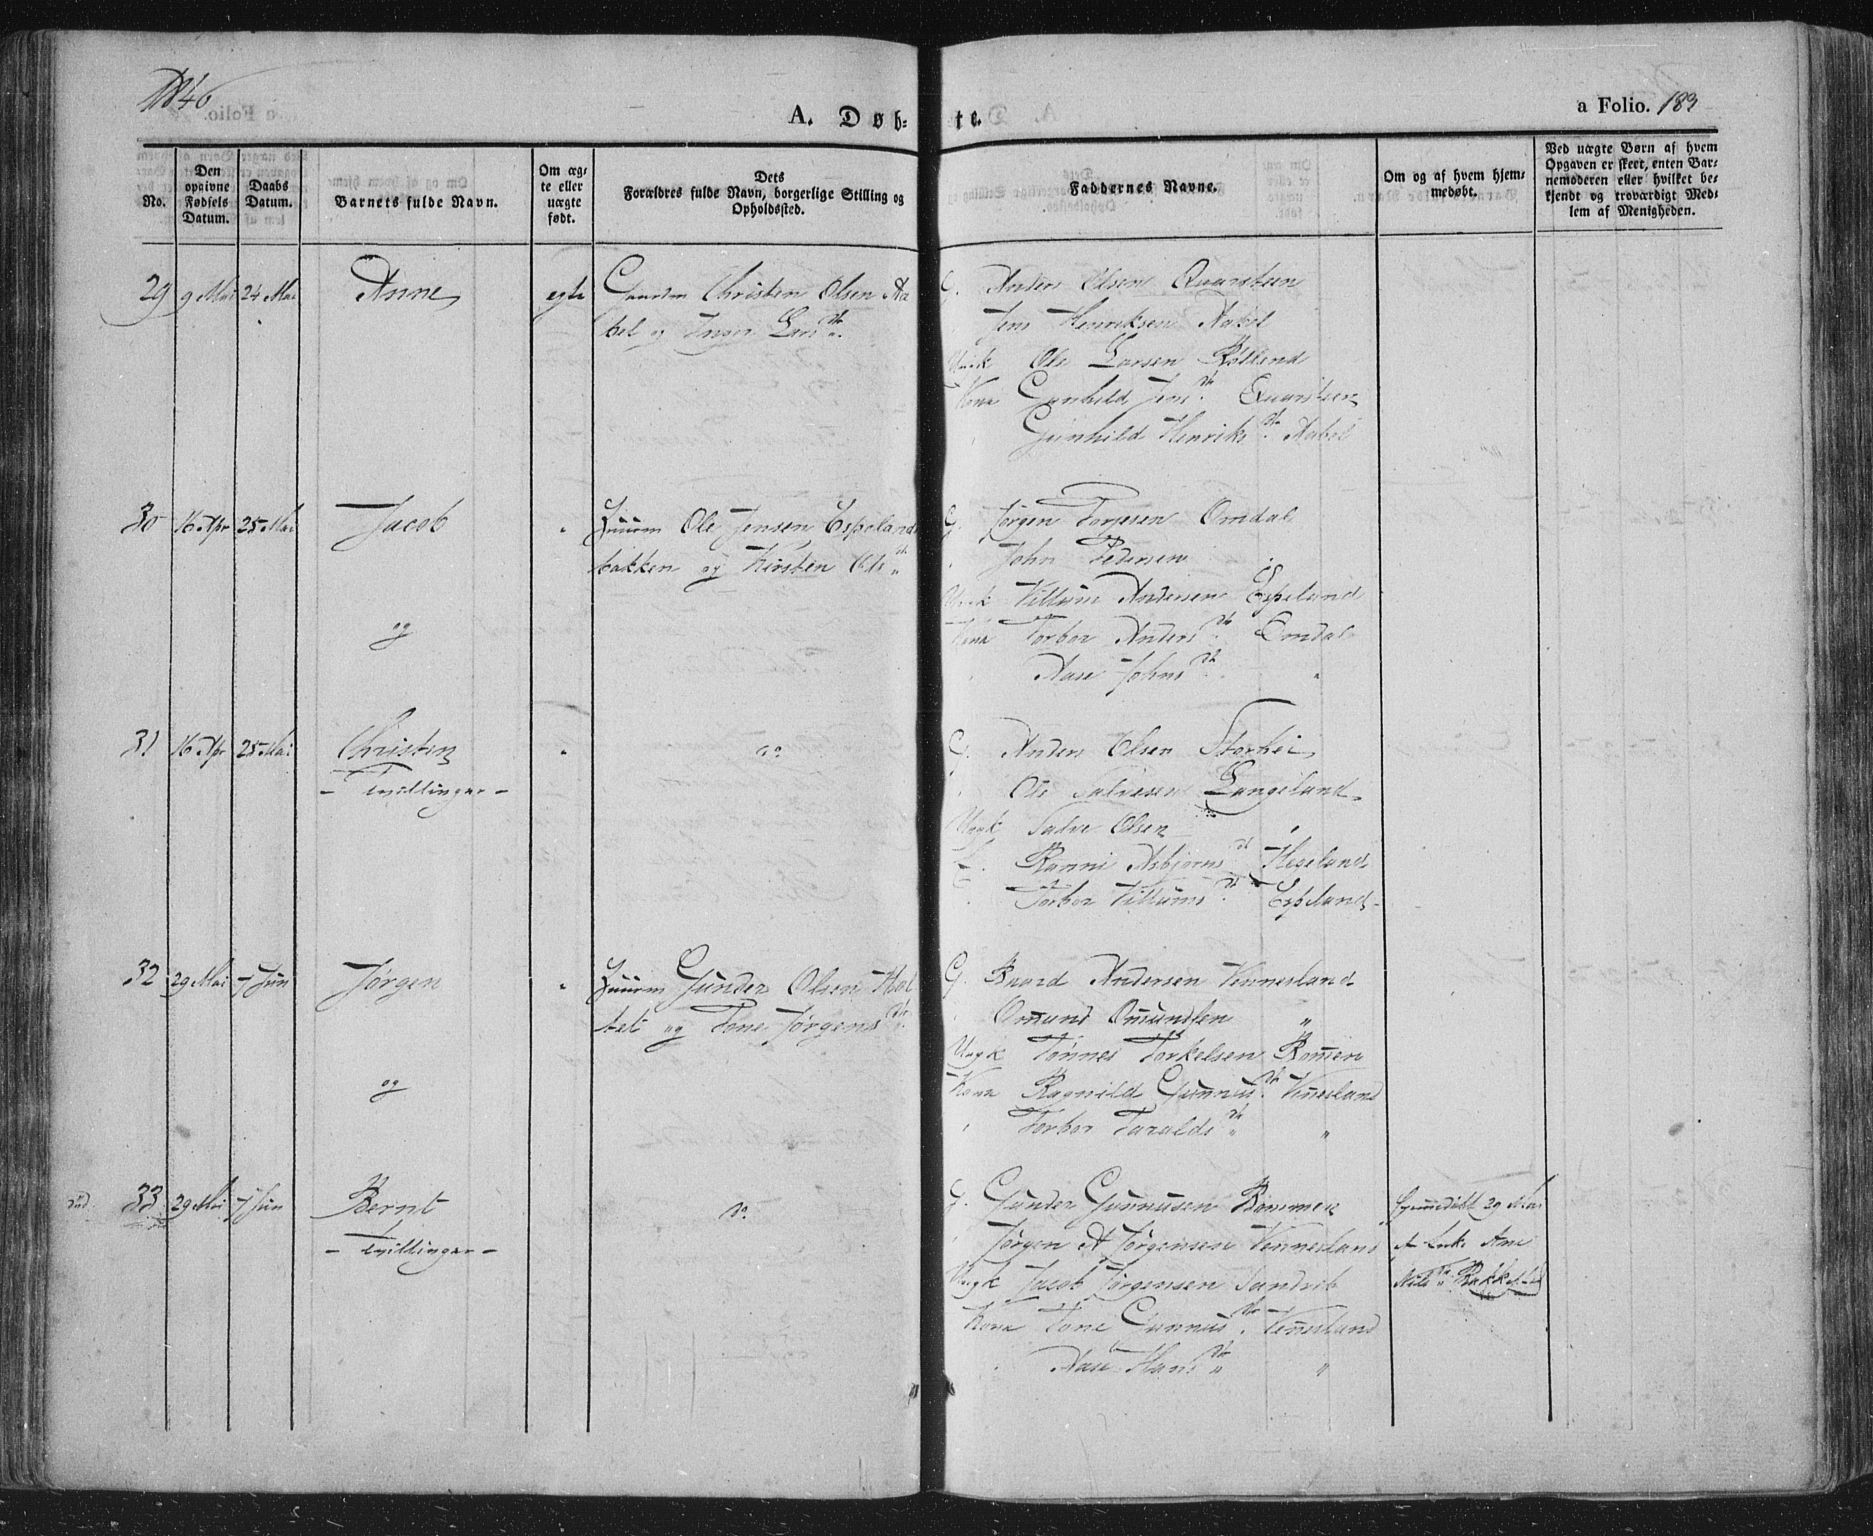 1846
A. Døbte.
a Folio. 183
No.
Den opgivne Fødsels Datum.
Daabs Datum.
Barnets fulde Navn.
Om ægte eller uægte født.
Dets Forældres fulde Navn, borgerlige Stilling og Opholdssted.
Faddernes Navne.
Om og af hvem hjemmedøbt.
Ved uægte Børn af hvem Opgaven er skeet, enten Barnemoderen eller hvilket bekjendt og troværdigt Medlem af Menigheden.
29 9 Mai 24 Mai Anne egte Gaardm Christen Olsen Aa
bel og Inger Lars Dr.
G. Anders Olsen Quarsteen
Jens Henriksen Aabel
Ungk Ole Larsen
Kona Gunhild Jens Dr. Quarsteen
Gunhild Henriks Dr. Aabel
30 16 Apr 25 Mai Jacob " Huusm Ole Jensen Espelands
bakken og Kirsten Ols Dr.
og
G. Jørgen Torjesen Omdal
John Pedersen "
Ungk Villum Andersen Espeland
Kona Torbor Anders Dr. Omdal
Aase Johns Dr. "
31 16 Apr 25 Mai Christen " Do
- Tvillinger -
G. Anders Olsen
Ole Salvesen Langeland
Ungk Salve Olsen "
Ranni Asbjørns Dr. Hegeland
Torbor Villums Dr. Espeland
32 29 Mai 7 Jun Jørgen " Huusm Gunder Olsen
tet og Tone Jørgens Dr.
og
G. Baard Andersen Vennesland
Omund Omundsen "
Ungk Tønnes Torkelsen Rommen
Kona Ragnild Gunnus Dr. Vennesland
Torbor Taralds Dr. "
død 33 29 Mai 7 Jun Bernt Do
- Tvillinger -
G. Gunder Gunnusen Rommen
Jørgen A Jørgensen Vennesland
Ungk Jacob Jørgensen Sandrib
Kona Tone Gunnus Dr. Vennesland
Aase Hans Dr. "
29 Mai
af Enke Ane
Nils Dr.